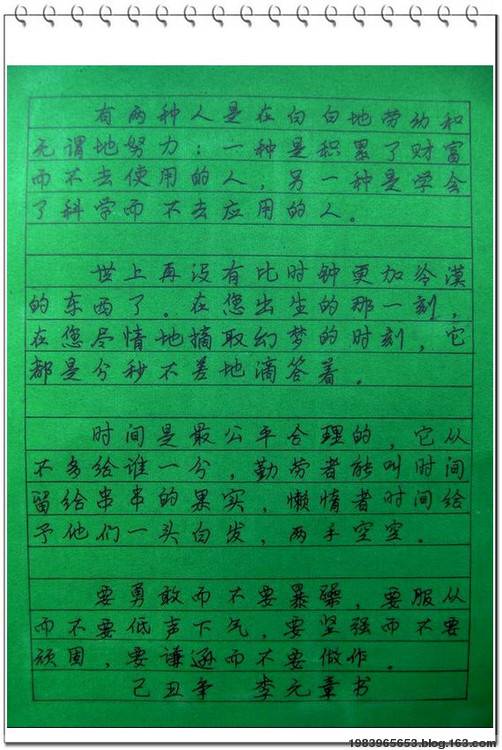 有两种人是在白白地劳动和
无谓地努力：一种是积累了财富
而不去使用的人，另一种是学会
了科学而不去应用的人。
世上再没有比时钟更加冷漠
的东西了。在您出生的那一刻，
在您尽情地摘取幻梦的时刻，它
都是分秒不差地滴答着。
时间是最公平合理的，它从
不多给谁一分，勤劳者能叫时间
留给串串的果实，懒惰者时间给
予他们一头白发，两手空空。
要勇敢而不要暴躁，要服从
而不要低声下气，要坚强而不要
顽固，要谦逊而不要做作。
己丑年 李元章书
1983965653.blog.163.com